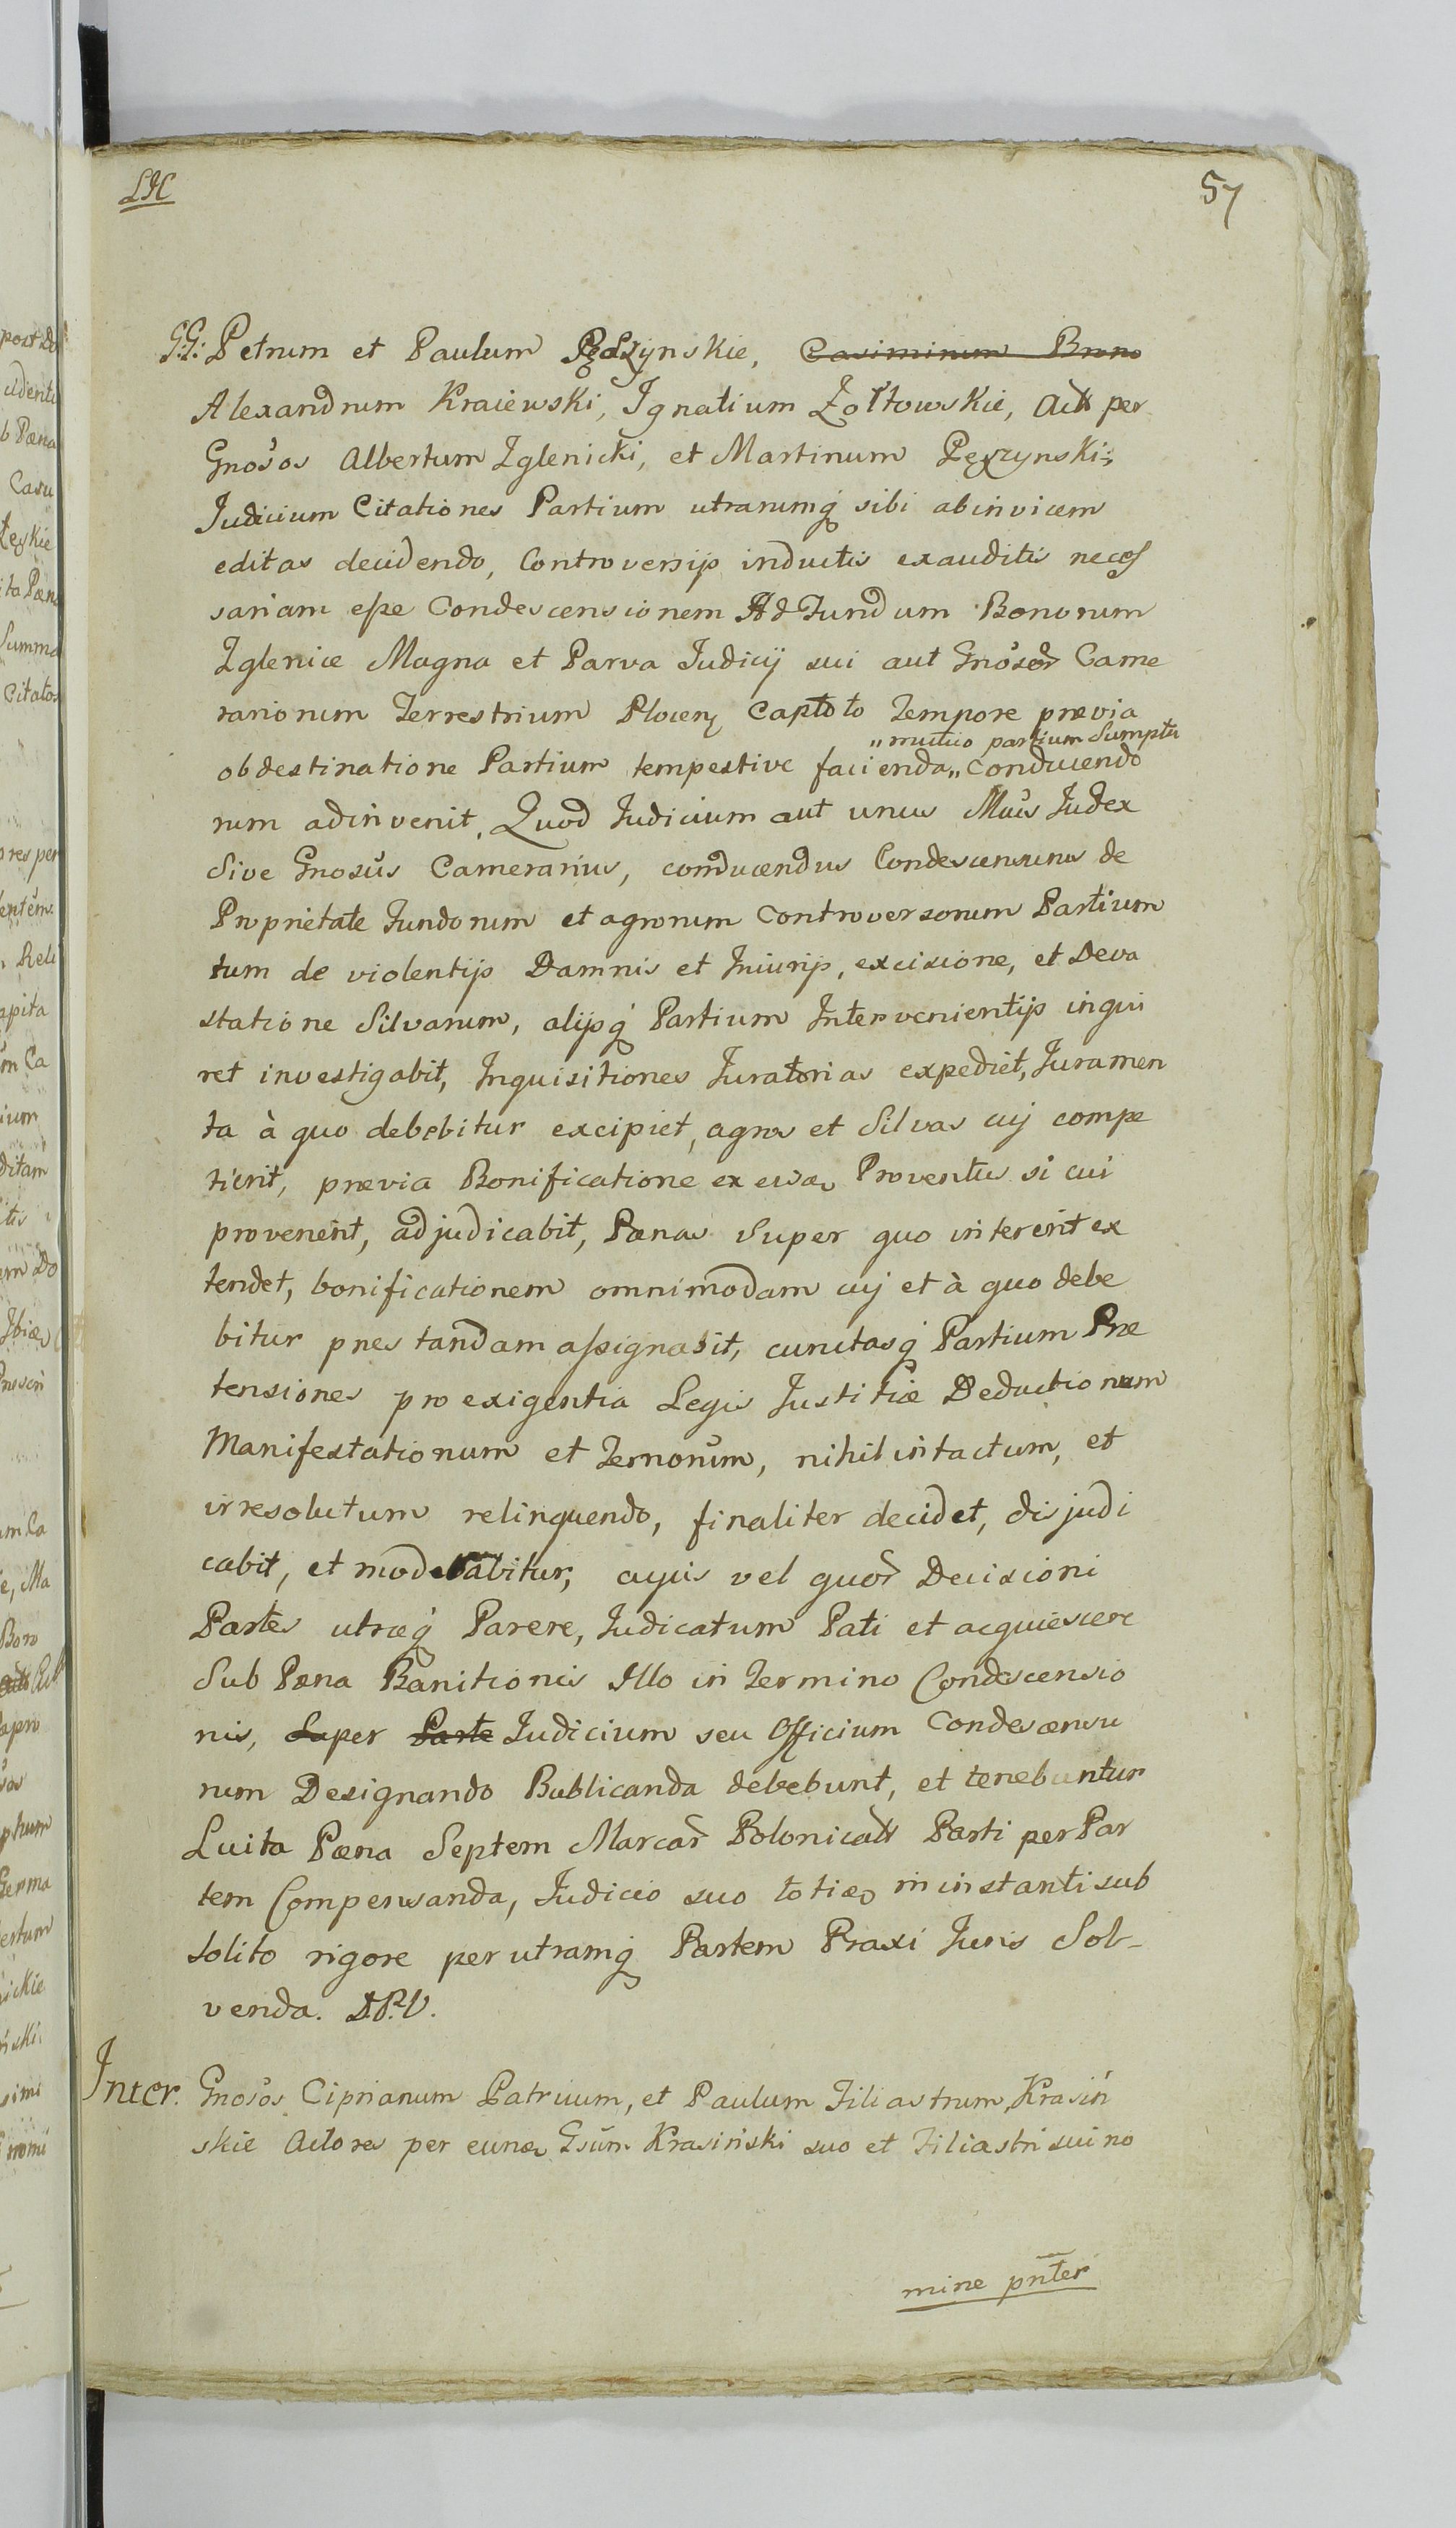 57
GG: Petrum et Paulum Pęczynskie, Casimirum Bruno
Alexandrum Kraiewski, Ignatium Zołtowskie, per
Gnosos Albertum Zglenicki, et Martinum Pęczynski;
Judicium Citationes Partium utrarumq sibi abinvicem
editas decidendo, Controversijs inductis exauditis neces
sariam esse Condescensionem Ad Fundum Bonorum
Zglenice Magna et Parva Judicij sui aut Gnosor Came
rariorum Terrestrium Plocen Captoto Tempore prævia
obdestinatione Partium tempestive facienda „ mutuo partium Sumptu „ conducendo
rum adinvenit. Quod Judicium aut unus Mcus Judex
Sive Gnosus Camerarius, conducendus Condescensurus de
Proprietate Fundorum et agrorum Controversorum Partium
tum de violentijs Damnis et Iniurijs, excisione, et Deva
statione Silvarum, alijsq Partium Intervenientijs inqui
ret investigabit, Inquisitiones Juratorias expediet, Juramen
ta à quo debebitur excipiet, agros et Silvas cuj compe
tierit, prævia Bonificatione ex Proventus si cui
provenerit, adjudicabit, Pænas Super quo intererit ex
tendet, bonificationem omnimodam cuj et à quo debe
bitur præstandam assignabit, cunctasq Partium Præ
tensiones pro exigentia Legis Justitiæ Deductionum
Manifestationum et Ternorum, nihil intactum, et
irresolutum relinquendo, finaliter decidet, disjudi
cabit, et moderabitur, cujus vel quor Decisioni
Partes utræq Parere, Judicatum Pati et acquiescere
Sub Pæna Banitionis Illo in Termino Condescensio
nis, Super Parte Judicium seu Officium Condescensu
rum Designando Publicanda debebunt, et tenebuntur
Luita Pæna Septem Marcar Polonicalt Parti per Par
tem Compensanda, Judicio suo toties in instanti sub
solito rigore per utramq Partem Praxi Juris Sol-
venda. D.P.V.
Inter. Gnosos Ciprianum Patruum, et Paulum Filiastrum, Krasiń
skie Actores per eund Gsum Krasiński suo et Filiastri sui no
mine pnter